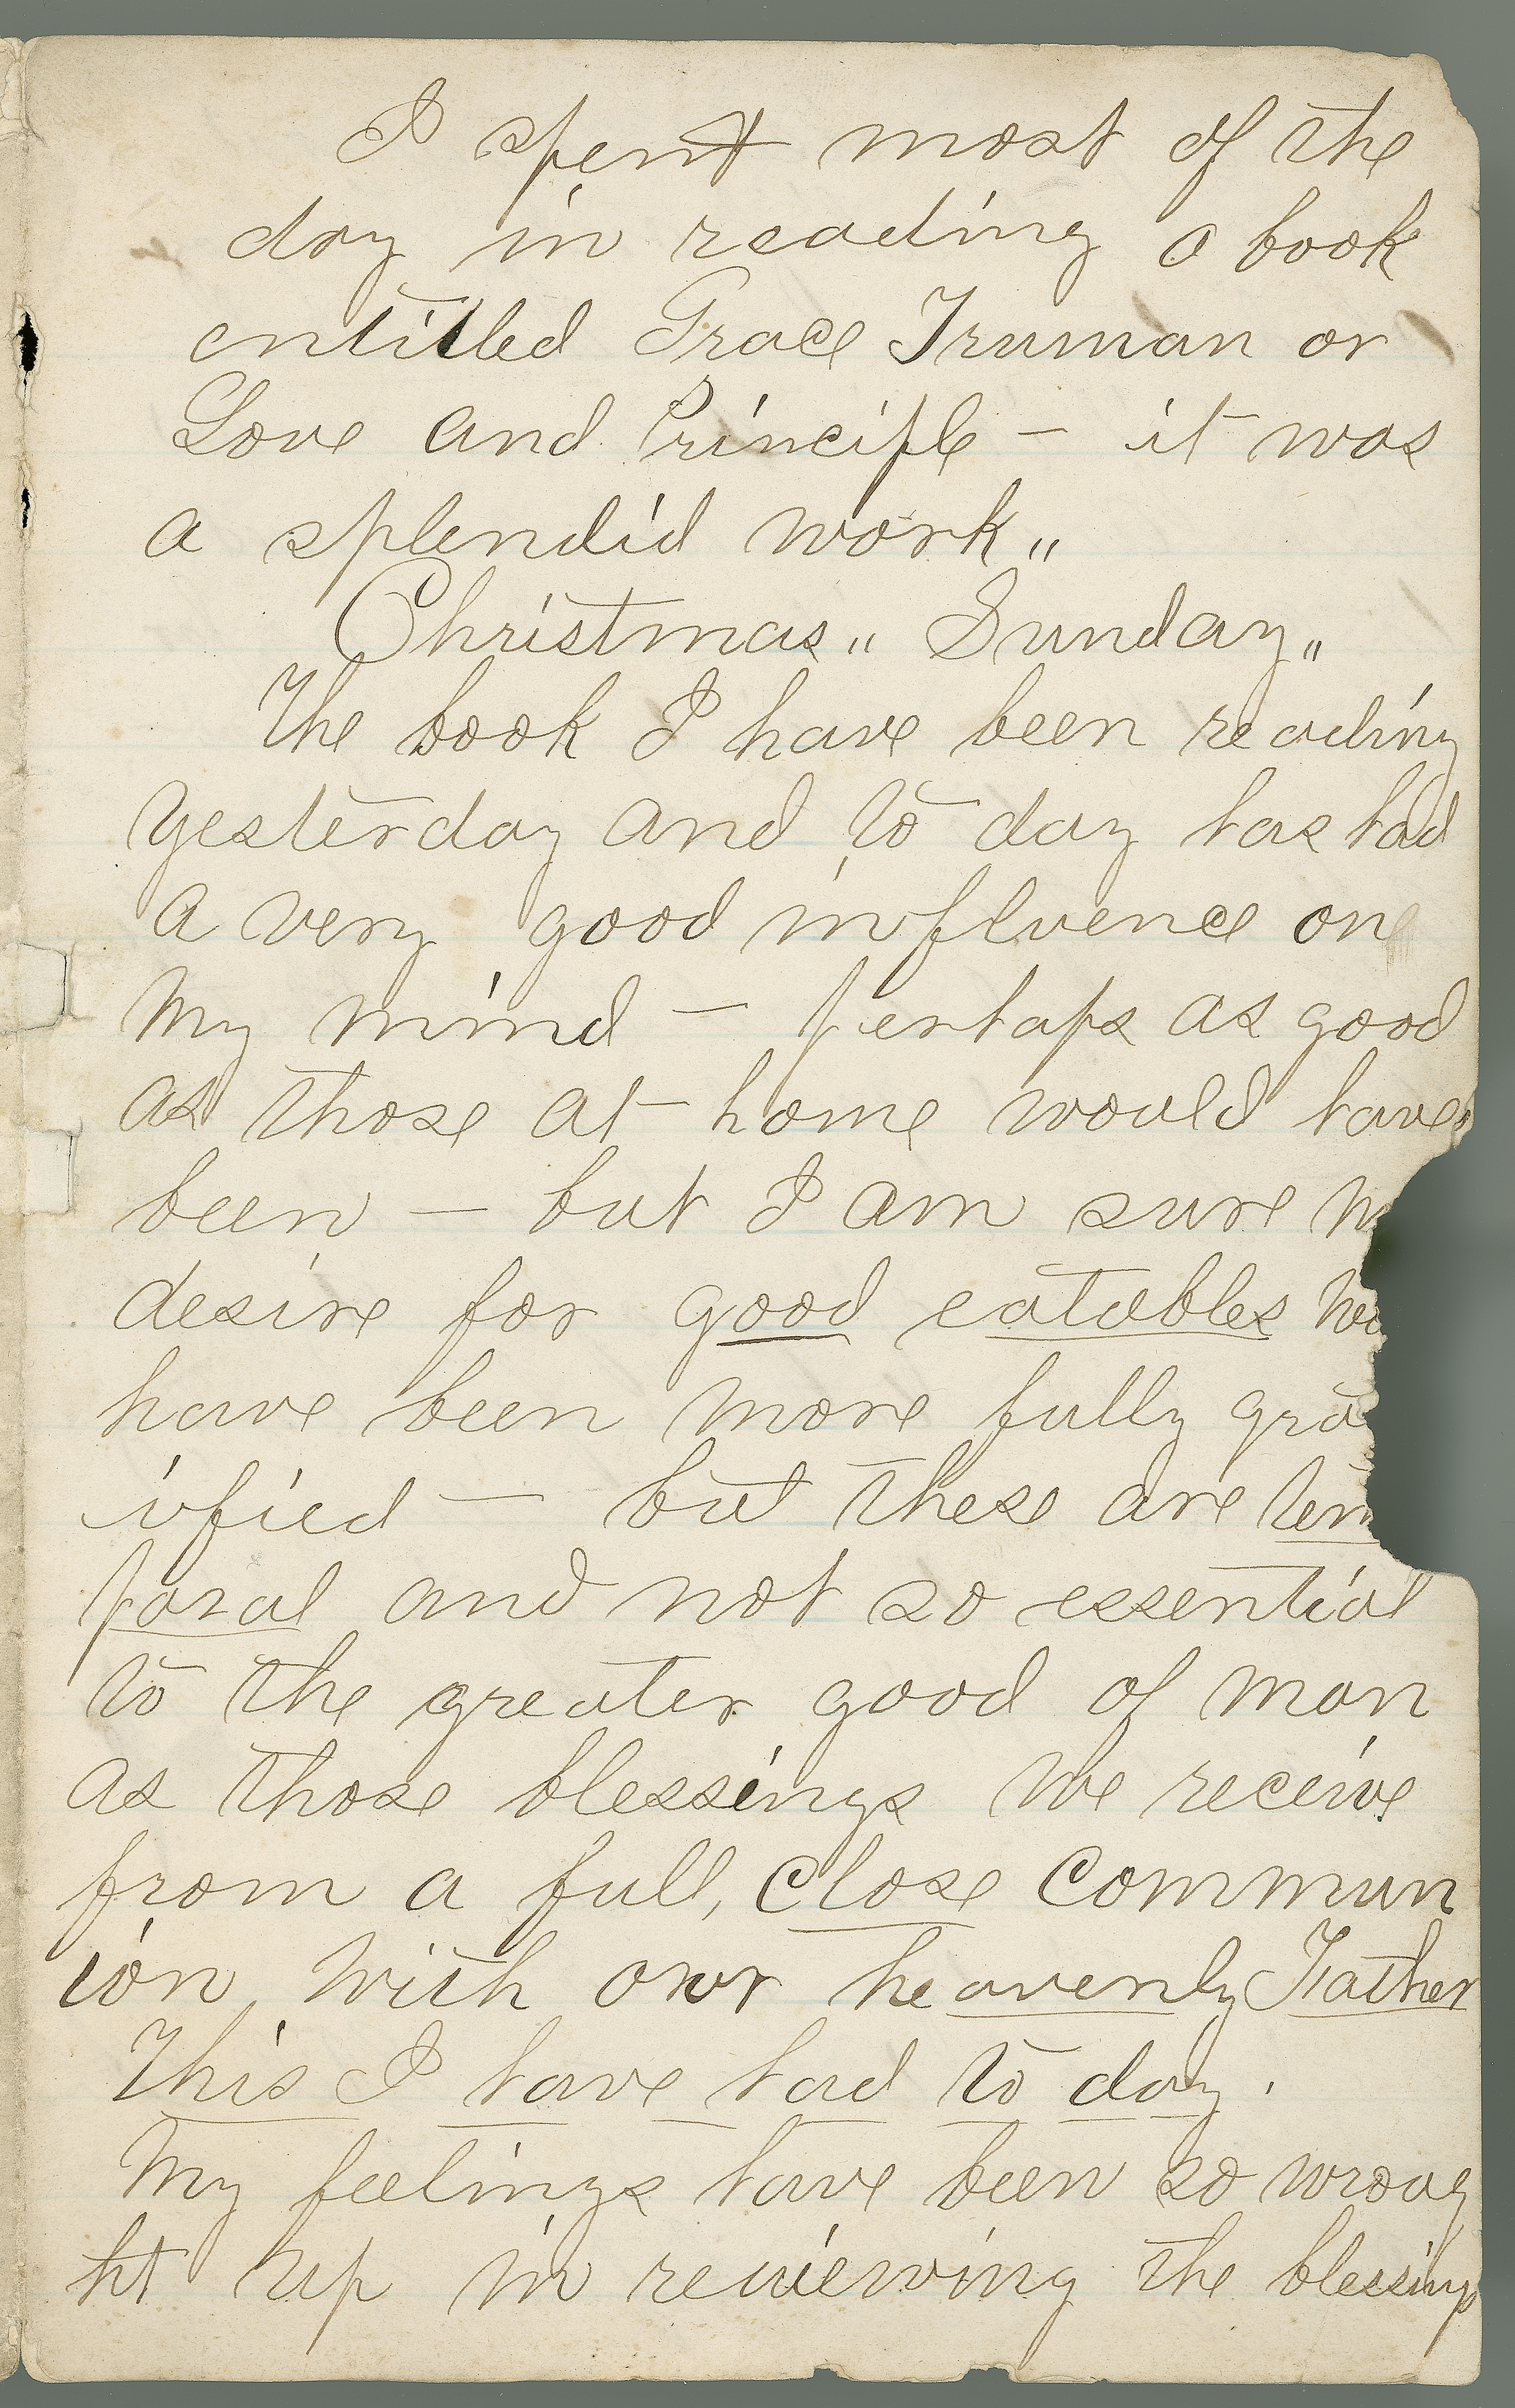 I spent most of the
day in reading a book
entitled Grace Truman or
Love and Principle – it was
a splendid work „
Christmas „ Sunday „
The book I have been reading
yesterday and to day has had
a very good influence on
my mind – perhaps as good
as those at home would have
been – but I am sure
desire for good eatables
have been more fully gra
ified – but these are tem
poral and not so essential
to the greater good of man
as those blessings we receive
from a full, close commun
ion with our heavenly Father
This I have had to day.
My feelings have been so wroug
ht up in reviewing the blessings